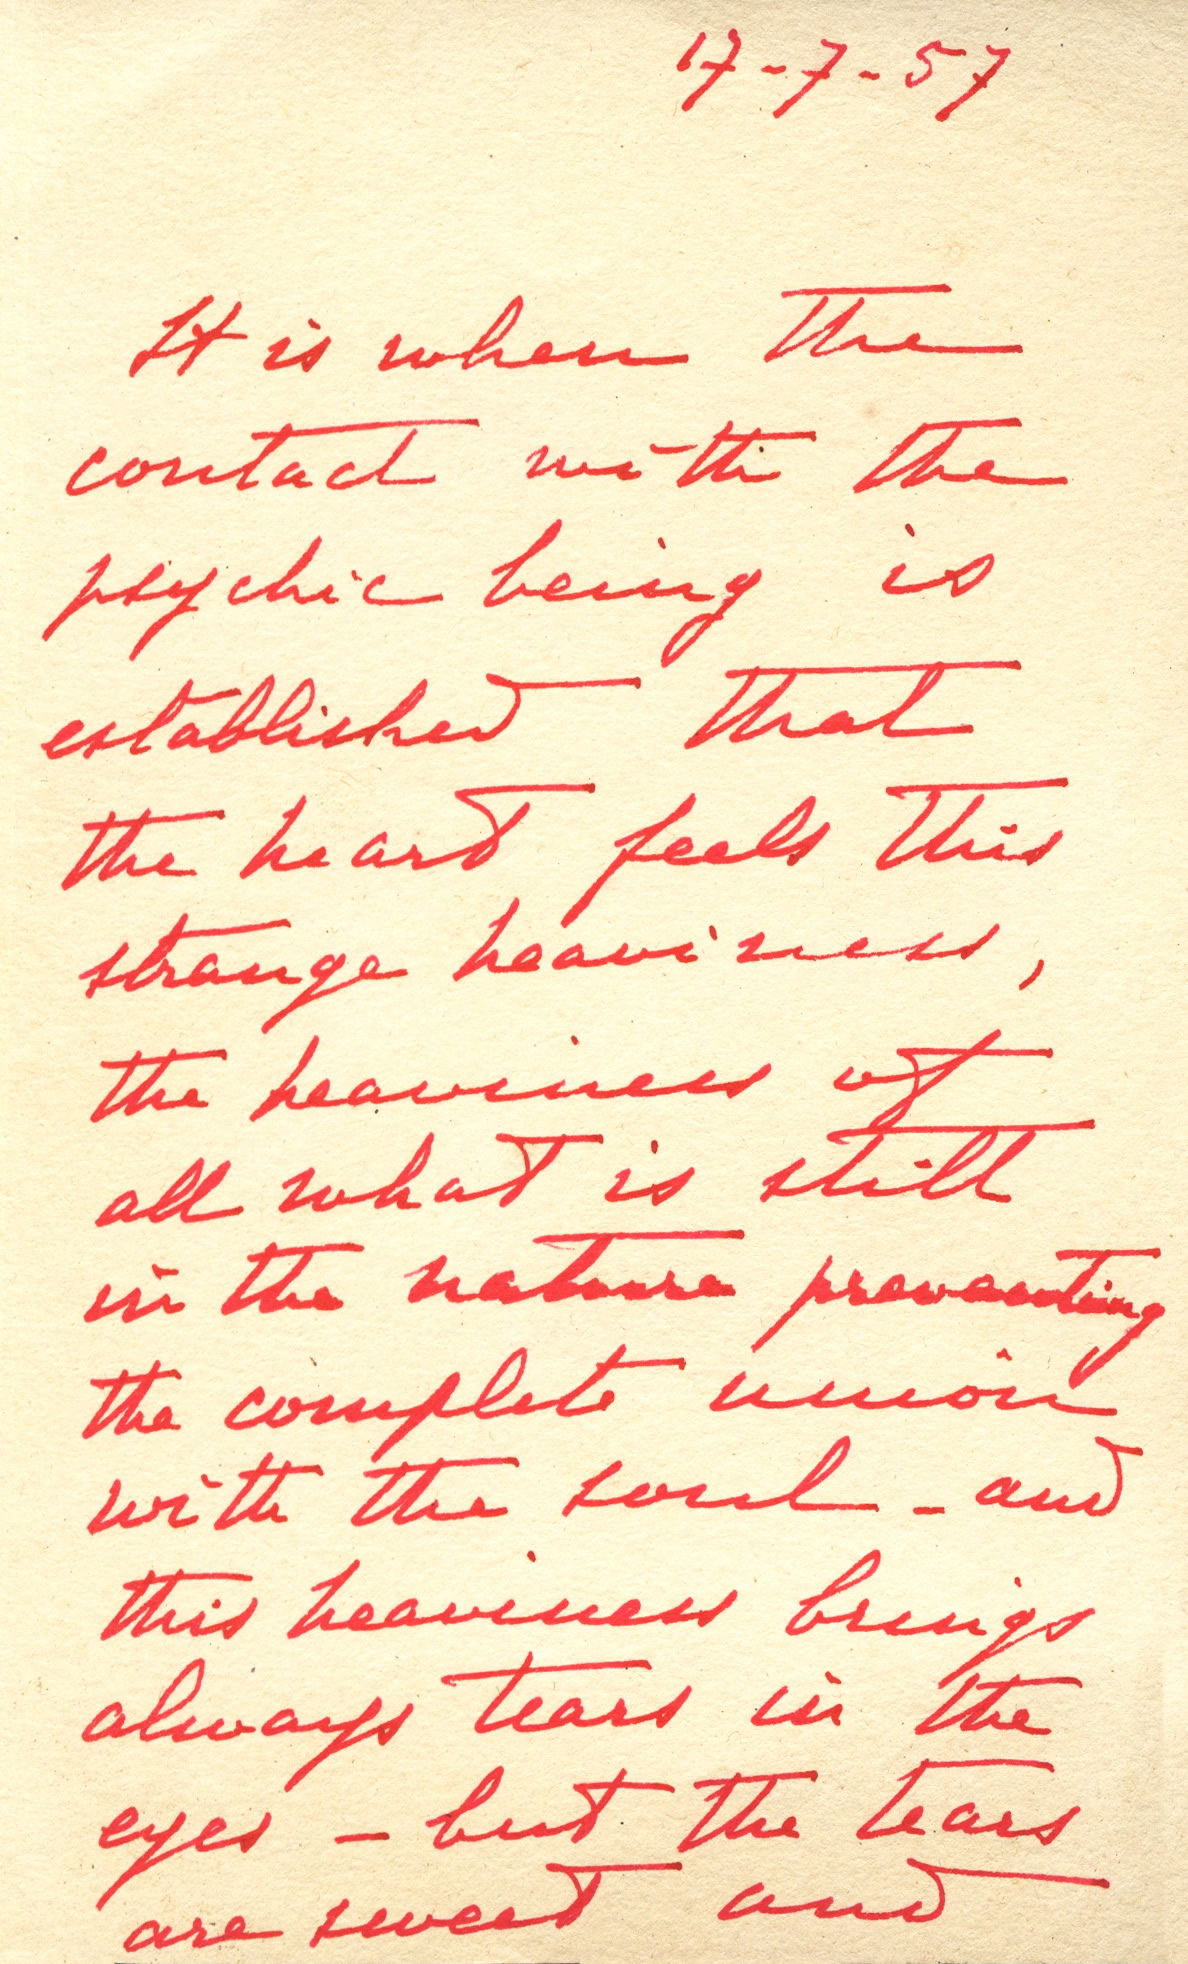 17-7-57
It is when the
contact with the
psychic being is
established that
the heart feels this
strange heaviness,
the heaviness of
all what is still
in the nature preventing
the complete union
with the soul - and
this heaviness brings
always tears in the
eyes - but the tears
are sweet and